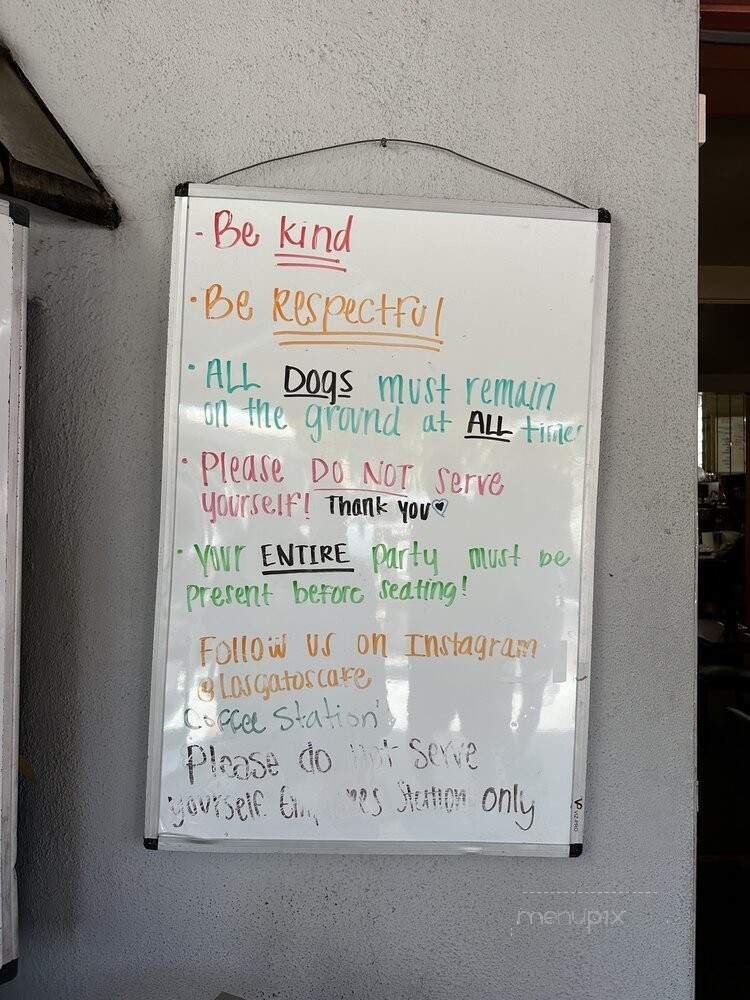 - Be kind
• Be Respectful
• ALL Dogs must remain
on the ground at ALL time
• Please DO NOT serve
yourself! Thank you
• Your ENTIRE party must be
present before seating!
Follow us on Instagram
@Losgatoscafe
Coffee Station
Please do not serve
yourself. Station only
menupix